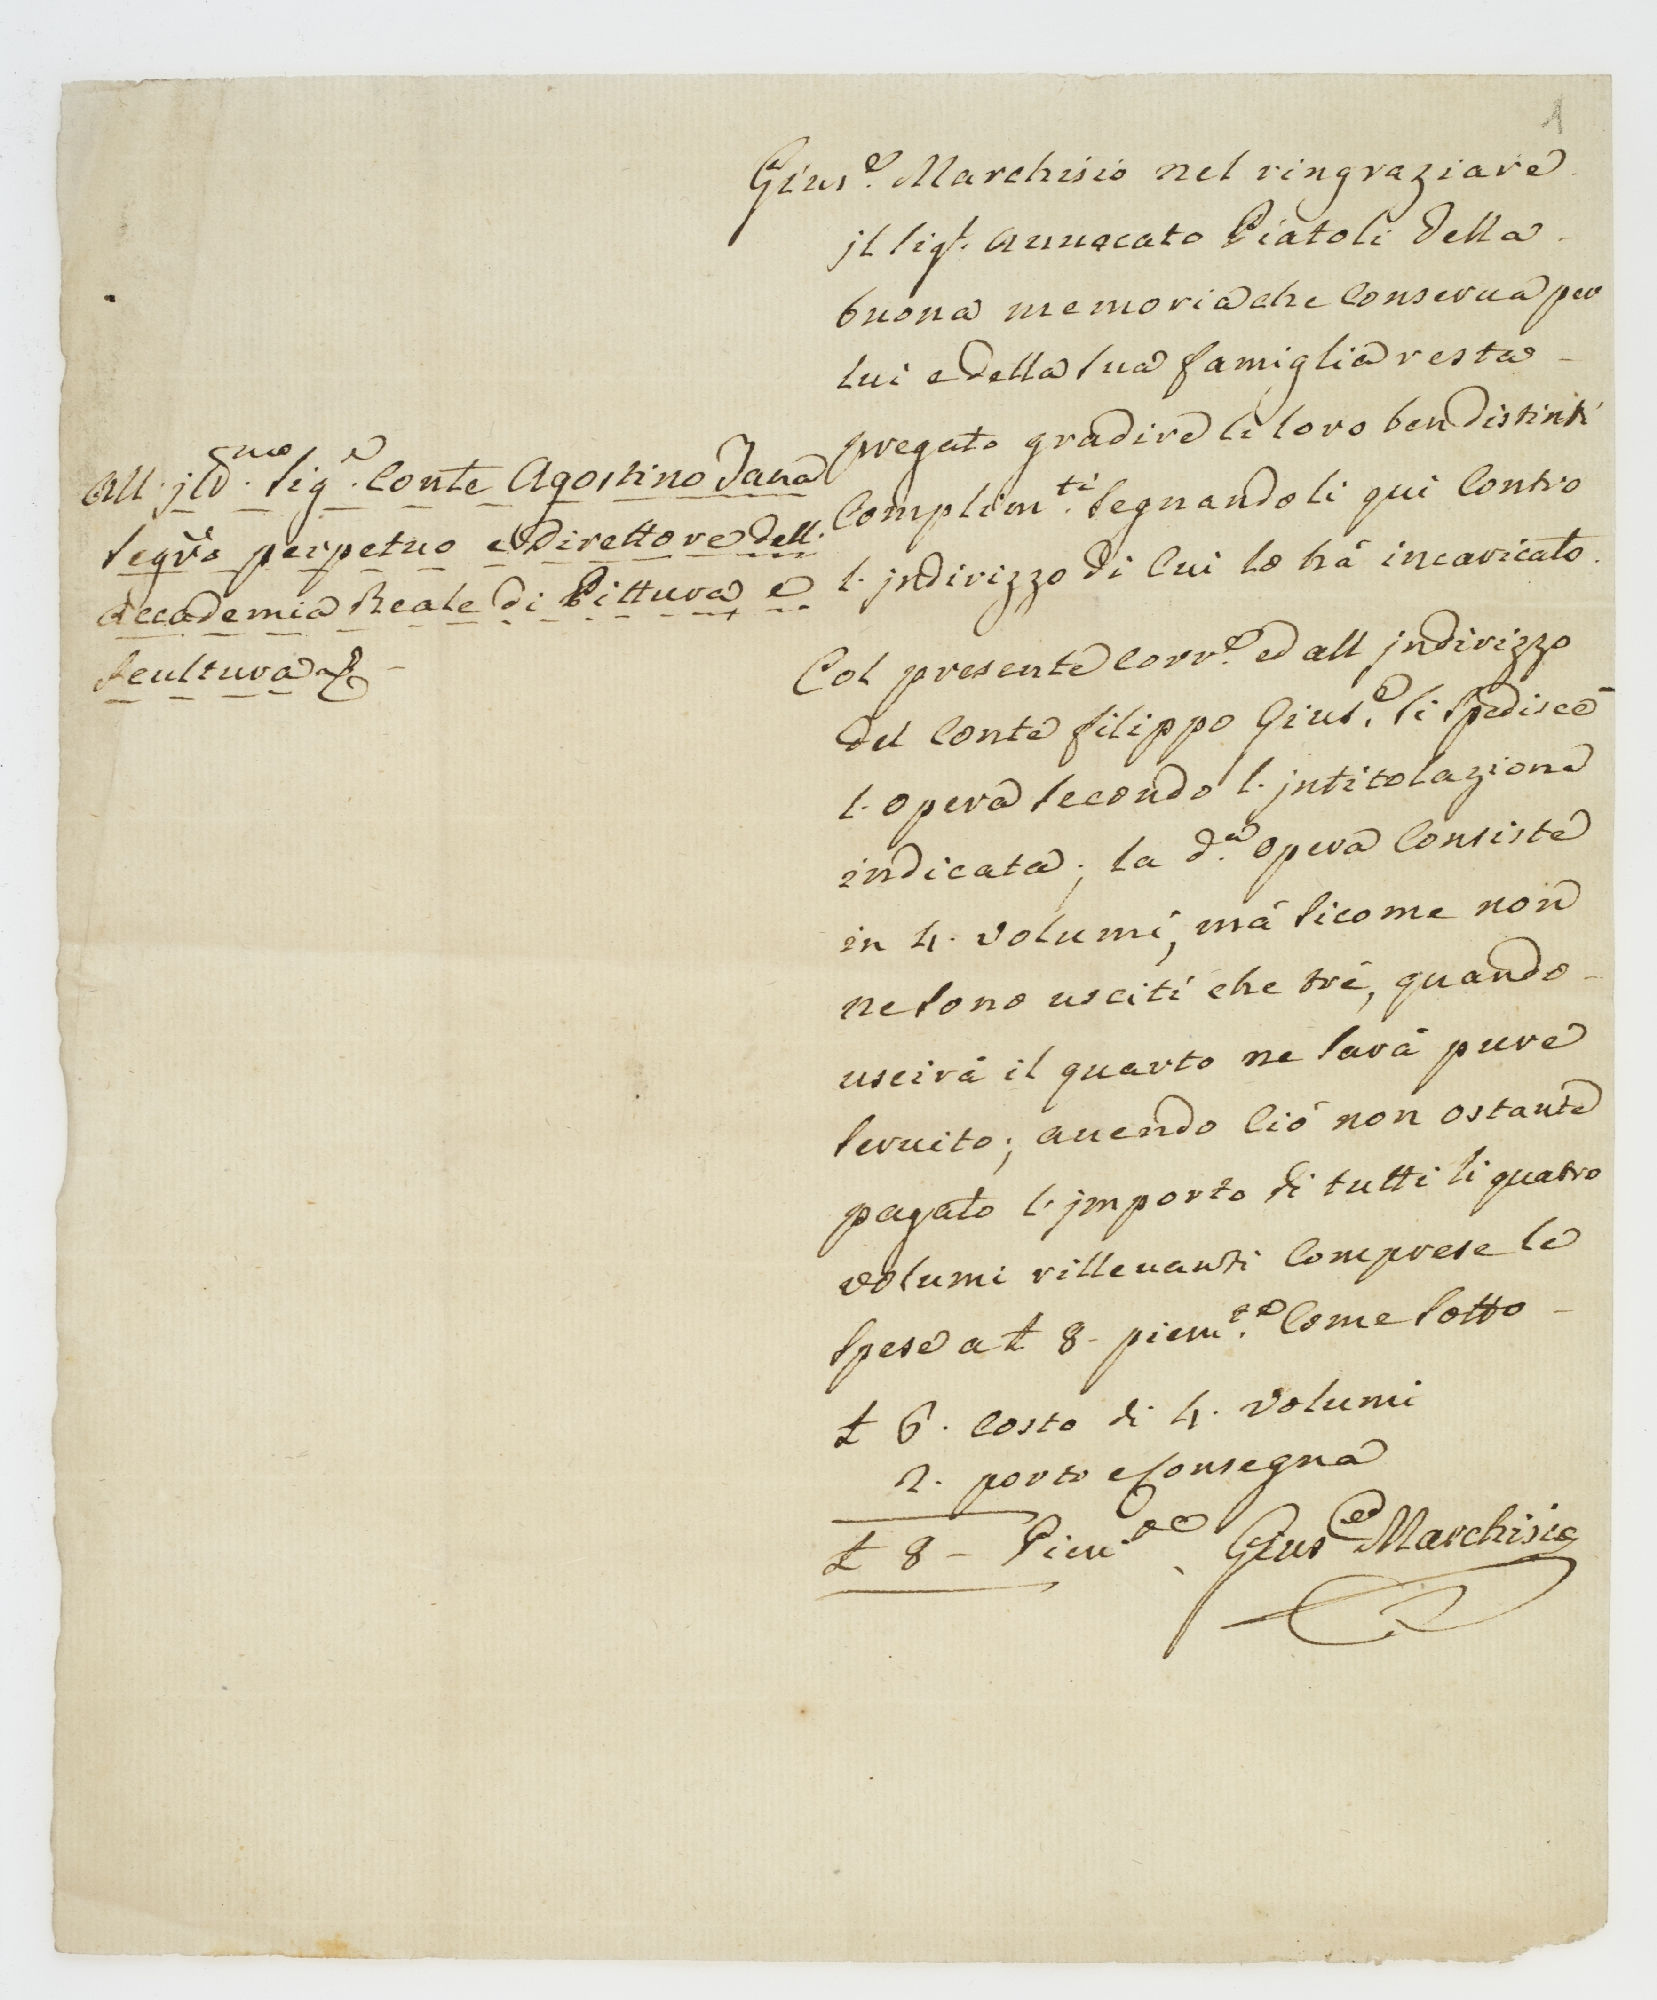 1
Gius.e Marchisio nel ringraziare
il sig.r auuocato Piatoli della
buona memoria che conserua per
lui e della sua famiglia resta -
pregato gradire li loro ben distinti
complim.ti segnandoli qui contro
l'jndirizzo di cui lo há incaricato.
All' jll.mo sig.e Conte Agostino Tana
segr.o perpetuo e Direttore dell'
Accademia Reale di Pittura e
scultura &. -
Col presente corr.e ed all jndirizzo
del Conte filippo Gius.e si spedisce
l'opera secondo l'jntitolazione
indicata; la d.a opera consiste
in 4. volumi, má sicome non
ne sono usciti che tré, quando -
uscirá il quarto ne sará pure
seruito; auendo ció non ostante
pagato l'jmporto di tutti li quatro
volumi rilleuanti comprese le
spese a £ 8- piem.te come sotto -
£ 6. costo di 4. volumi
2. porto e consegna
£ 8 - Piem.te Gius.e Marchisio